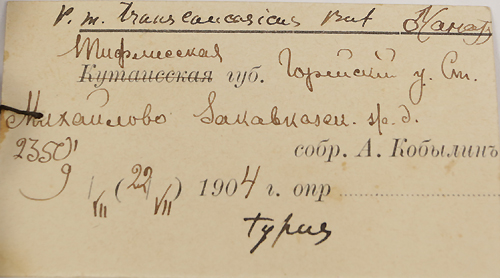 P. m. transcaucasicus But
Тифлисская
Кутаисская губ. Горийскій у. Ст.
Михайлово Закавказск. ж. д.
2350'
собр. А. Кобылинъ
9/VII (22/VII) 1904 г. опр